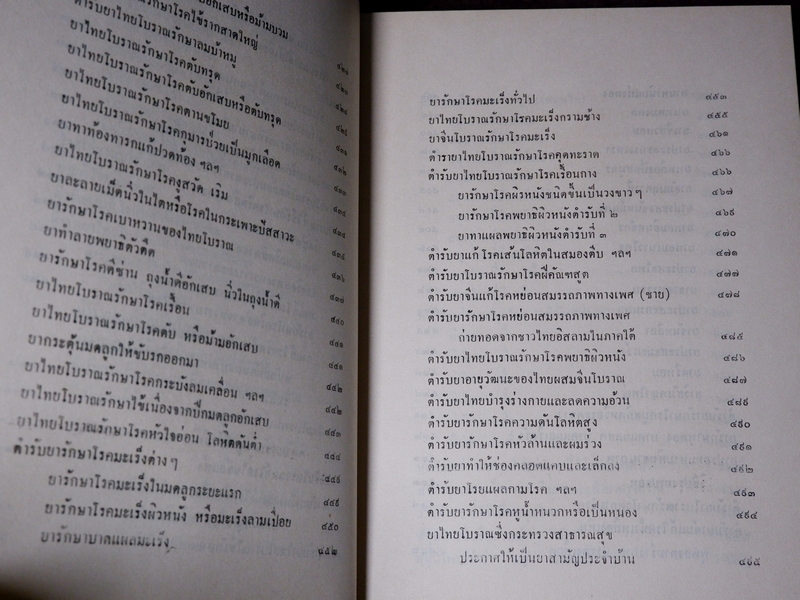 อักเสบหรือม้ามบวม
รักษาโรคใช้รากสาดใหญ่
ตำรับยาไทยโบราณรักษาลมบ้าหมู
ยาไทยโบราณรักษาโรคตับทรุด
ยาไทยโบราณรักษาโรคตับอักเสบหรือตับทรุด
ยาไทยโบราณรักษาโรคตานขโมย
ยาไทยโบราณรักษาโรคกุมารป่วยเป็นมูกเลือด
ยาทาท้องทารกแก้ปวดท้อง ฯลฯ
ยาไทยโบราณรักษาโรคงูสวัด เริม
ยาละลายเม็ดนิ่วในไตหรือโรคในกระเพาะปัสสาวะ
ยารักษาโรคเบาหวานของไทยโบราณ
ยาทำลายพยาธิตัวตืด
ยารักษาโรคดีซ่าน ถุงน้ำดีอักเสบ นิ่วในถุงน้ำดี
ยาไทยโบราณรักษาโรคเรื้อน
ยาไทยโบราณรักษาโรคตับ หรือม้ามอักเสบ ๔๔๑
ยากระตุ้นมดลูกให้ขับรกออกมา ๔๔๑
ยาไทยโบราณรักษาโรคกระบังลมเคลื่อน ฯลฯ ๔๔๒
ยาไทยโบราณรักษาใช้เนื่องจากปีกมดลูกอักเสบ ๔๔๒
ยาไทยโบราณรักษาโรคหัวใจอ่อน โลหิตดันต่ำ ๔๔๓
ตำรับยารักษาโรคมะเร็งต่างๆ ๔๔๔
ยารักษาโรคมะเร็งในมดลูกระยะแรก
ยารักษาโรคมะเร็งผิวหนัง หรือมะเร็งลามเปื่อย ๔๕๐
ยารักษาบาดแผลมะเร็ง ๔๕๒
ยารักษาโรคมะเร็งทั่วไป ๔๕๓
ยาไทยโบราณรักษาโรคมะเร็งกรามช้าง ๔๕๕
ยาจีนโบราณรักษาโรคมะเร็ง ๔๖๑
ตำรายาไทยโบราณรักษาโรคคุดทะราด ๔๖๖
ตำรับยาไทยโบราณรักษาโรคเรื้อนกวาง ๔๖๖
ยารักษาโรคผิวหนังชนิดขึ้นเป็นวงขาวๆ ๔๖๗
ยารักษาโรคพยาธิผิวหนังตำรับที่ ๒ ๔๖๙
ยาทาแผลพยาธิผิวหนังตำรับที่ ๓ ๔๗๐
ตำรับยาแก้โรคเส้นโลหิตในสมองตีบ ฯลฯ ๔๗๑
ตำรับยาโบราณรักษาโรคฝีคัณฑสูต ๔๗๗
ตำรับยาจีนแก้โรคหย่อนสมรรถภาพทางเพศ (ชาย) ๔๗๘
ตำรับยารักษาโรคหย่อนสมรรถภาพทางเพศ
ถ่ายทอดจากชาวไทยอิสลามในภาคใต้ ๔๘๕
ตำรับยาไทยโบราณรักษาโรคพยาธิผิวหนัง ๔๘๖
ตำรับยาอายุวัฒนะของไทยผสมจีนโบราณ ๔๘๗
ตำรับยาไทยบำรุงร่างกายและลดความอ้วน ๔๘๙
ตำรับยารักษาโรคความดันโลหิตสูง ๔๙๐
ตำรับยารักษาโรคหัวล้านและผมร่วง ๔๙๑
ตำรับยาทำให้ช่องคลอดแคบและเล็กลง ๔๙๒
ตำรับยาโรยแผลกามโรค ฯลฯ ๔๙๓
ตำรับยารักษาโรคหูน้ำหนวกหรือเป็นหนอง ๔๙๔
ยาไทยโบราณซึ่งกระทรวงสาธารณสุข
ประกาศให้เป็นยาสามัญประจำบ้าน ๔๙๕